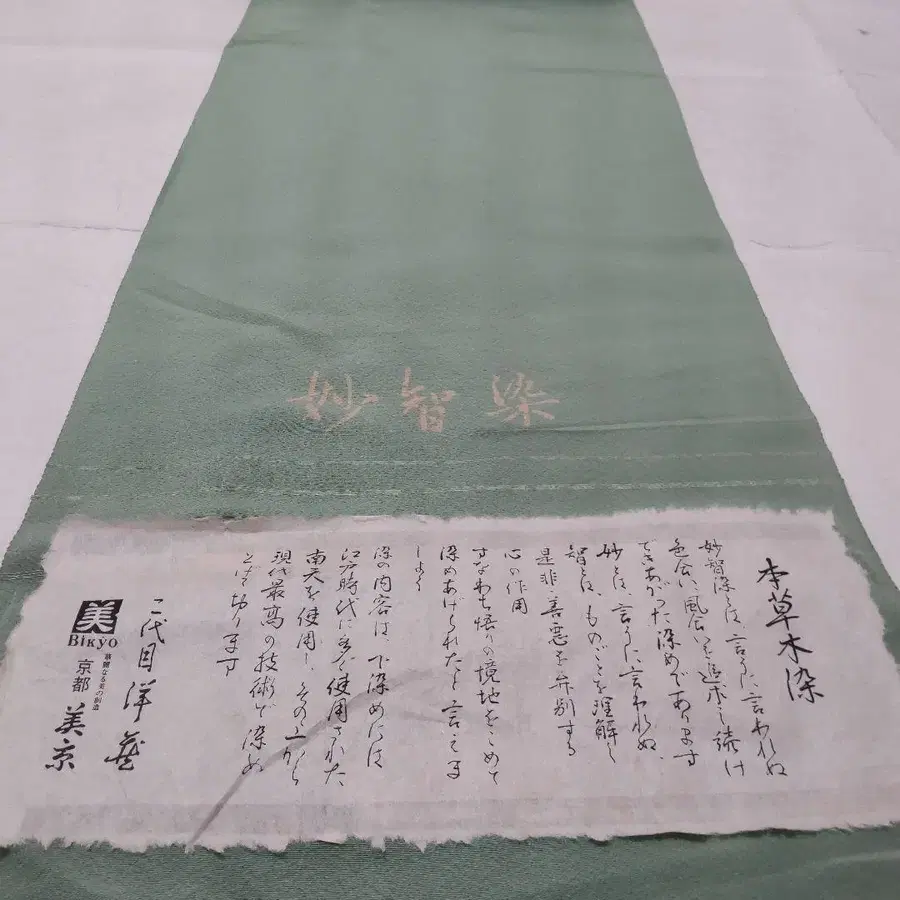 妙智染
本草木染
妙智染とは、言うに言われぬ
色合い、風合いを追求し続け
できあがった染めであります
妙とは、言うに言われぬ、
智とは、ものごとを理解し
是非・善悪を弁別する
心の作用
すなわち悟りの境地をこめて
染めあげられたと言えま
しょう
染の内容は、下染めには
江戸時代に多く使用された
南天を使用し、その上から
現代最高の技術で染め
上げて
二代目洋蔵
美
Bikyo
華麗なる美の創造
京都
美京